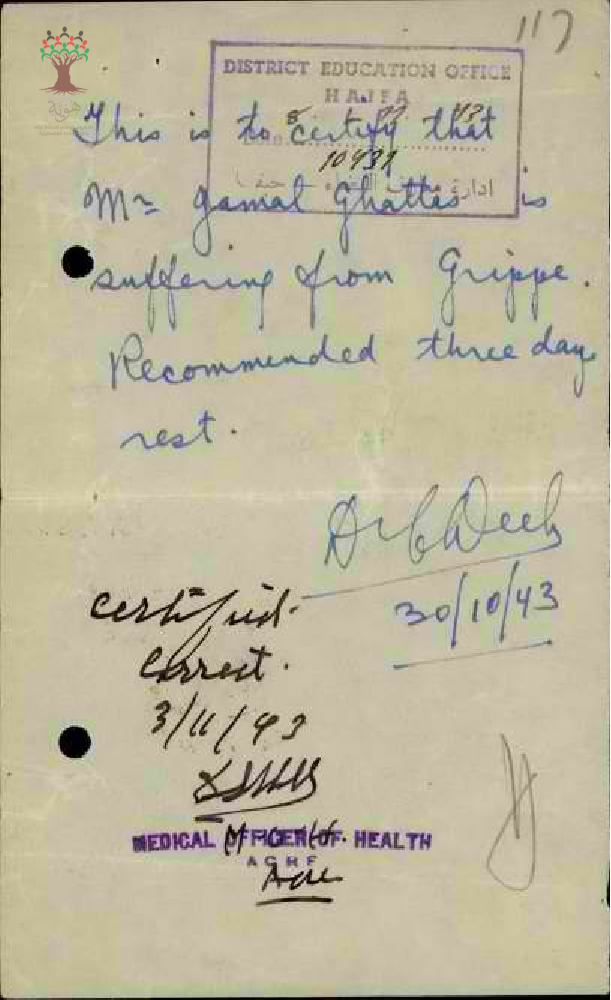 117
هوية
DISTRICT EDUCATION OFFICE
HAIFA
8 11 43
10431
ادارة
This is to certify that
Mr Gamal Ghattas is
suffering from Grippe.
Recommended three days
rest.
Dr
30/10/43
Certified
Correct.
3/11/43
M.O.H.
MEDICAL OFFICER OF HEALTH
ACRE
Acre